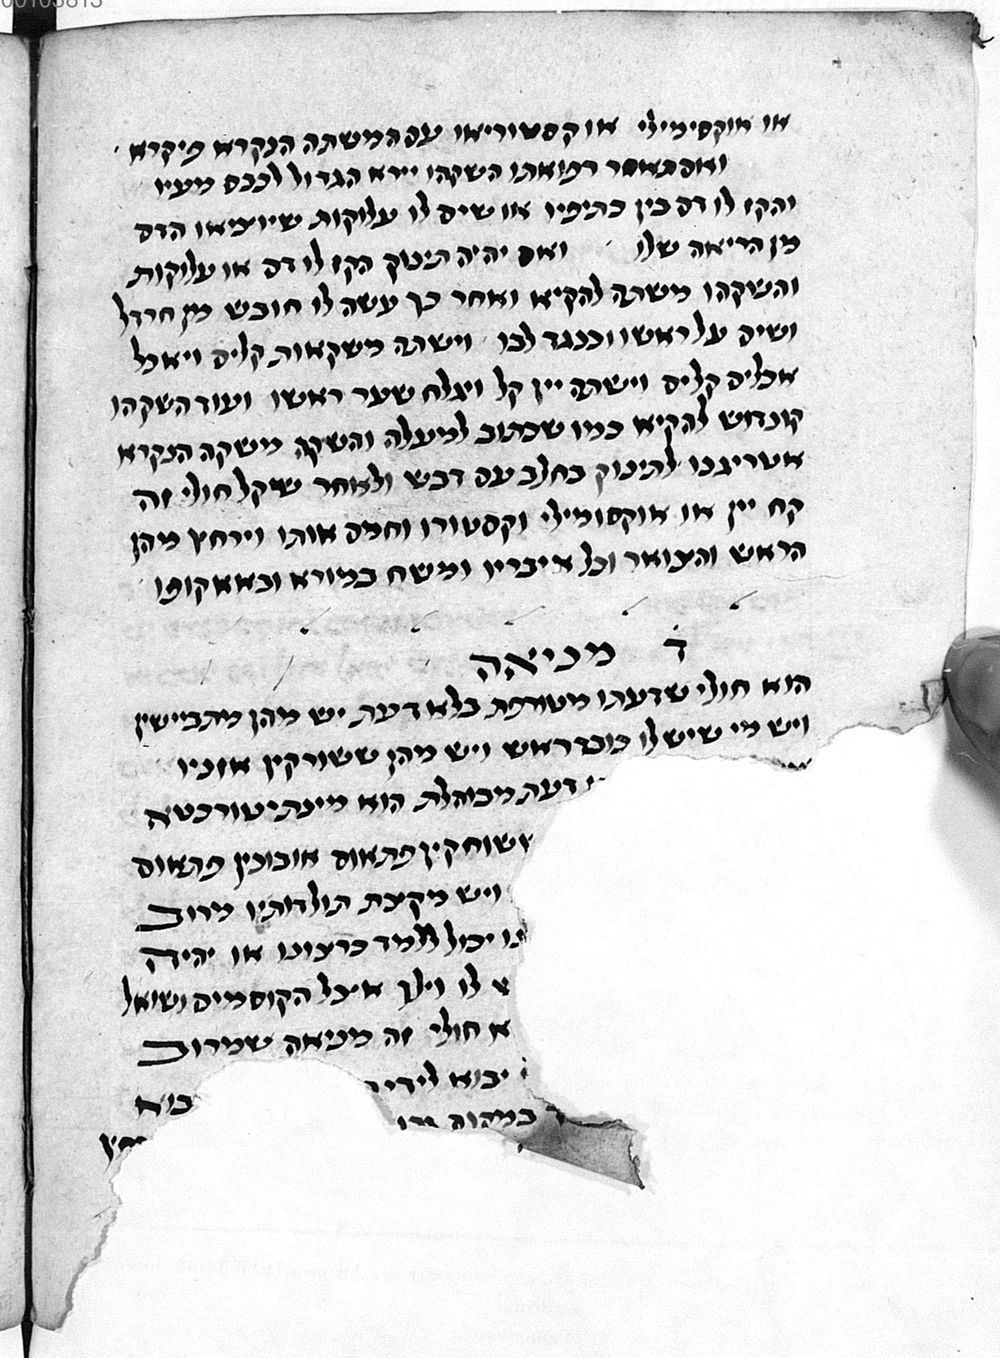 00103813
או אוקסימילי או קסטוריאו עם המשתה הנקרא פיקרא
ואם תאסר רפואתו השקהו יירא הגדול לכבס מעיו
והקז לו דם בין כתיפיו או שים לו עלוקות שיוציאו הדם
מן הריאה שלו ואם יהיה תינוק הקז לו דם או עלוקות
והשקהו משתה להקיא ואחר כך עשה לו חובש מן חרדל
ושים על ראשו וכנגד לבו וישתה משקאות קלים ויאכל
אכלים קלים וישתה יין קל ויגלח שער ראשו ועוד השקהו
קונדוש להקיא כמו שכתוב למעלה והשקה משקה הנקרא
אטריגנו לתינוק בחלב עם דבש ולאחר שיקל חולי זה
קח יין או אוקסומילי וקסטורו וחמם אותו וירחץ מהן
הראש והצואר וכל איבריו ומשח במורא ובאאקופו
ד מניאה
הוא חולי שדעתו מטורפת בלא דעת יש מהן מתביישין
ויש מי שיש לו כובד ראש ויש מהן ששורקין אזניו
דעת מבוהלת הוא מינתיטורבטא
ששוחקין פתאום ובוכין פתאום
ויש מקצת תולדותיו מרוב
יכול ללמד כרצונו או יהיה
לו וילך אצל הקוסמים ושואל
חולי זה מניאה שמרוב
יבוא לידי
במהוה